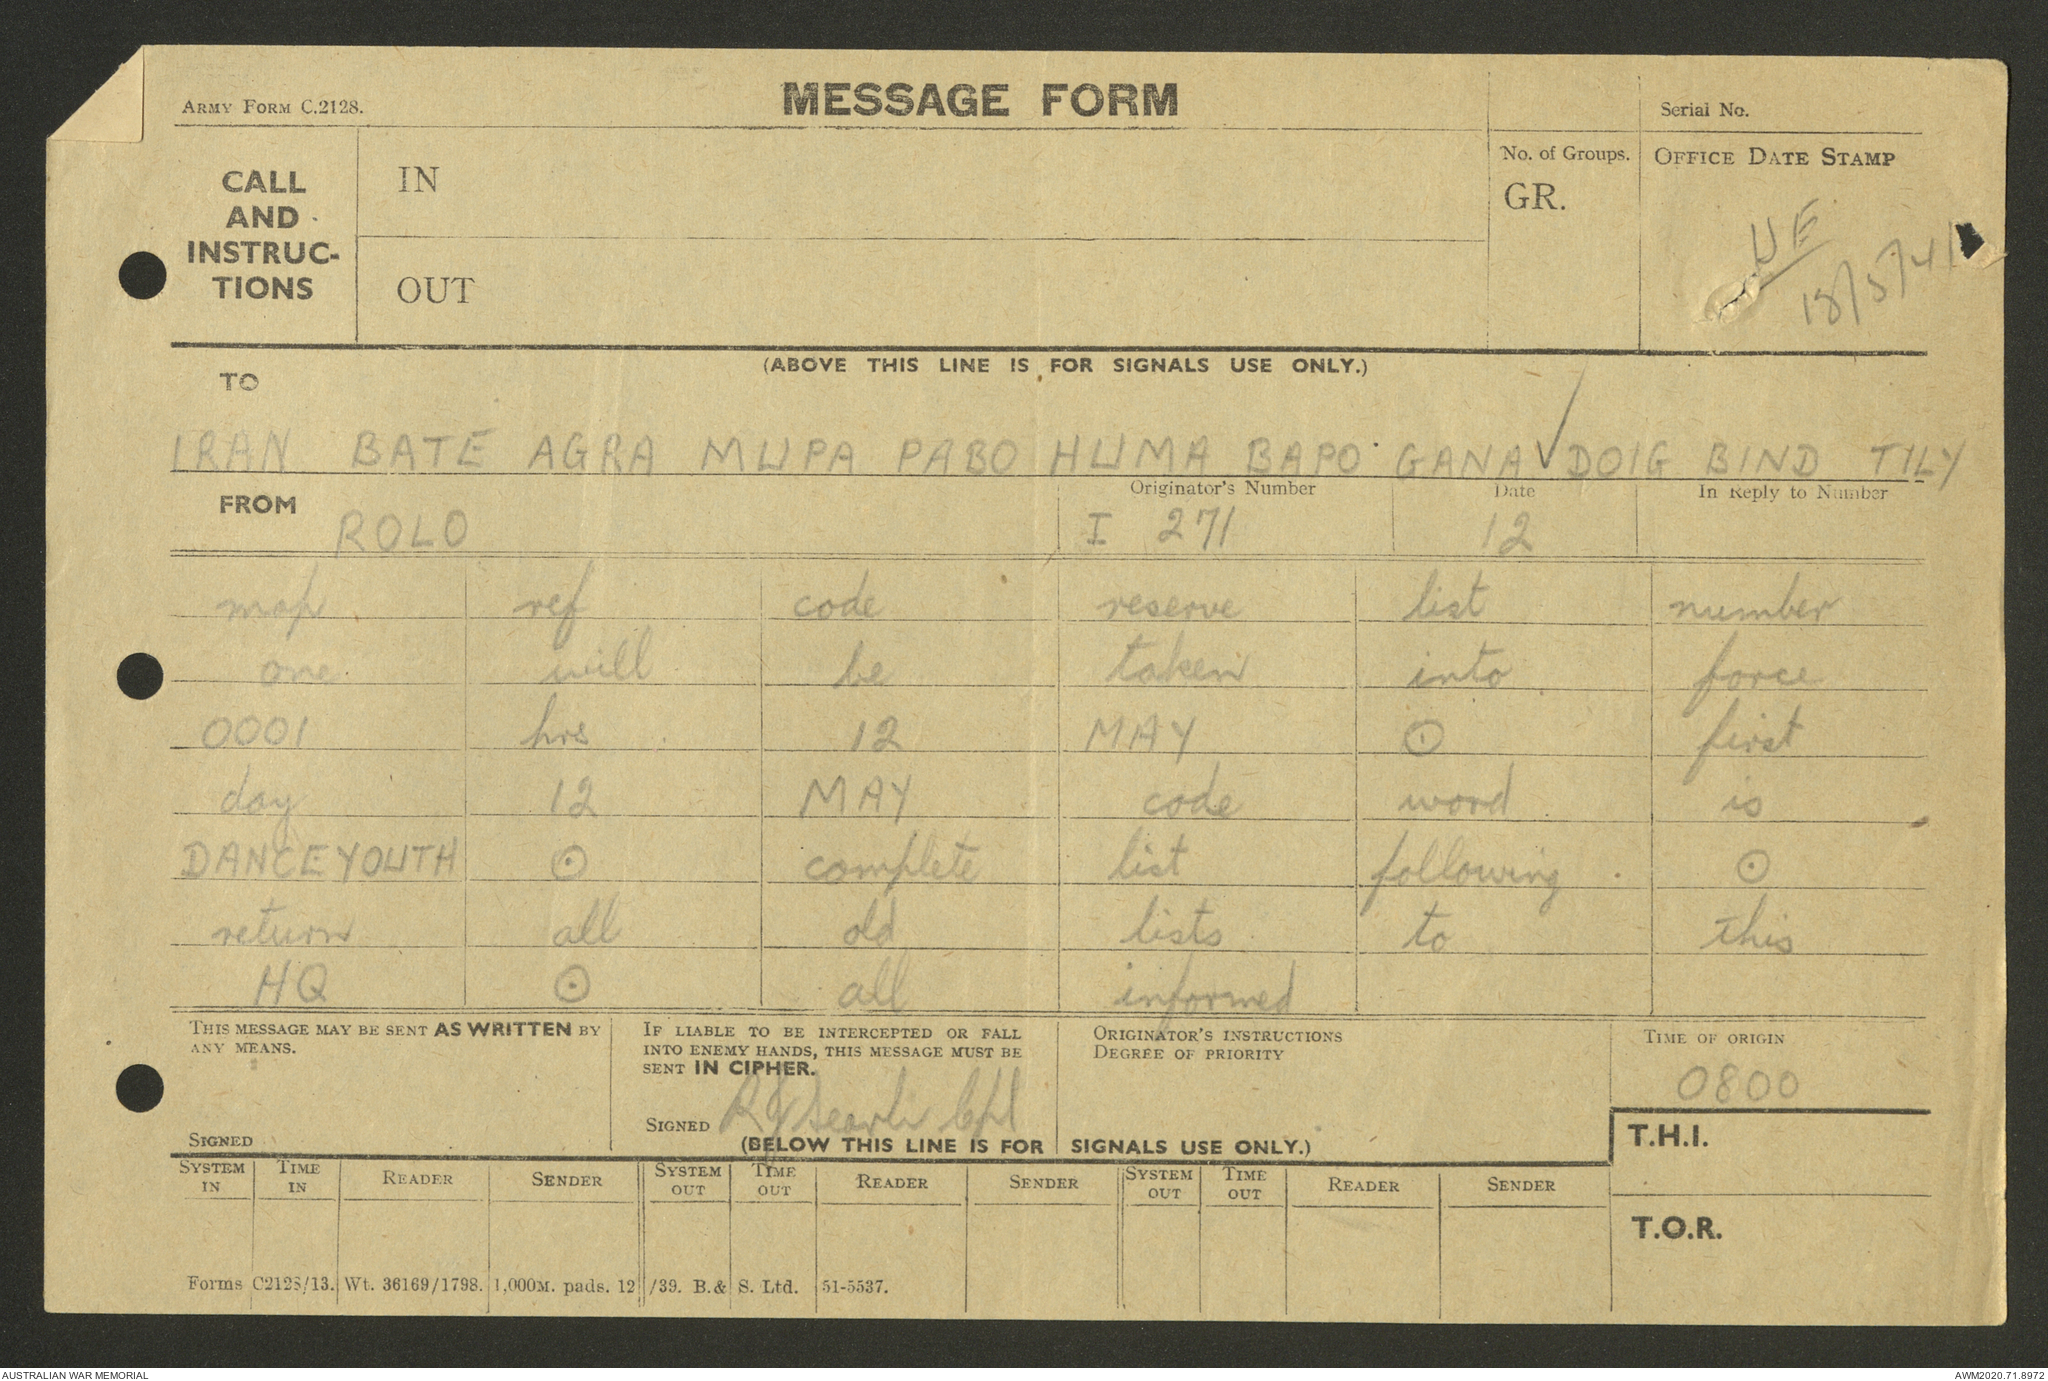 ARMY FORM C.2128.
MESSAGE FORM
Serial No.
CALL
AND
INSTRUC-
TIONS
IN
OUT
No. of Groups.
GR.
OFFICE DATE STAMP
18/5/41
(ABOVE THIS LINE IS FOR SIGNALS USE ONLY.)
TO
IRAN BATE AGRA MUPA PABO HUMA BAPO GANA DOIG BIND TILY
FROM
ROLO
Originator's Number
I 271
Date
12
In Reply to Number
map ref code reserve list number
one will be taken into force
0001 hrs 12 MAY ⊙ first
day 12 MAY code word is
DANCEYOUTH ⊙ complete list following ⊙
return all old lists to this
HQ ⊙ all informed
THIS MESSAGE MAY BE SENT AS WRITTEN BY
ANY MEANS.
SIGNED
IF LIABLE TO BE INTERCEPTED OR FALL
INTO ENEMY HANDS, THIS MESSAGE MUST BE
SENT IN CIPHER.
SIGNED
ORIGINATOR'S INSTRUCTIONS
DEGREE OF PRIORITY
TIME OF ORIGIN
0800
(BELOW THIS LINE IS FOR SIGNALS USE ONLY.)
T.H.I.
T.O.R.
SYSTEM IN TIME IN READER SENDER SYSTEM OUT TIME OUT READER SENDER SYSTEM OUT TIME OUT READER SENDER
Forms C2128/13. Wt. 36169/1798. 1,000M. pads. 12/39. B.& S. Ltd. 51-5537.
AUSTRALIAN WAR MEMORIAL
AWM2020.71.8972